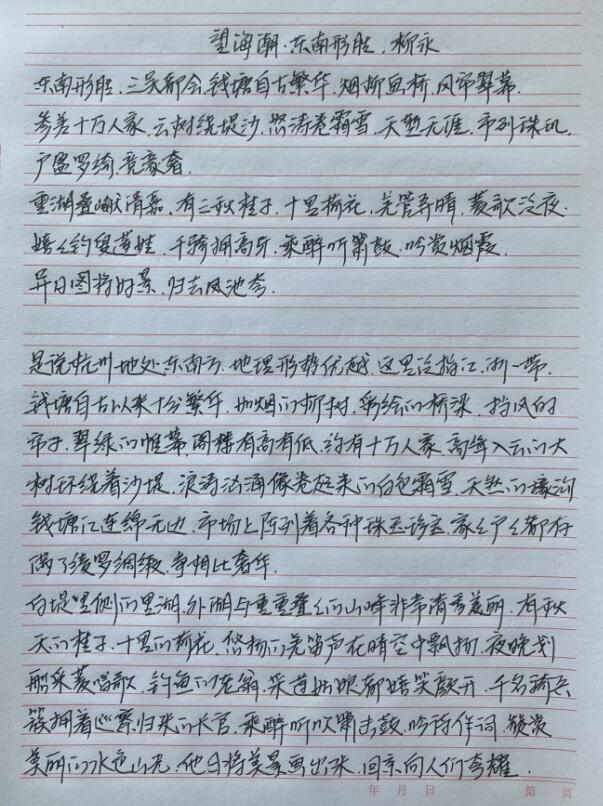 望海潮·东南形胜,柳永
东南形胜,三吴都会,钱塘自古繁华,烟柳画桥,风帘翠幕,
参差十万人家,云树绕堤沙,怒涛卷霜雪,天堑无涯,市列珠玑,
户盈罗绮,竞豪奢.
重湖叠巘清嘉,有三秋桂子,十里荷花,羌管弄晴,菱歌泛夜.
嬉嬉钓叟莲娃,千骑拥高牙,乘醉听箫鼓,吟赏烟霞.
异日图将好景,归去凤池夸.
是说杭州地处东南方,地理形势优越,这里泛指江、浙一带.
钱塘自古以来十分繁华,如烟的柳树,彩绘的桥梁,挡风的
帘子,翠绿的帷幕,阁楼有高有低,约有十万人家,高耸入云的大
树环绕着沙堤,浪涛汹涌像卷起来的白色霜雪,天然的壕沟
钱塘江连绵无边,市场上陈列着各种珠玉珍宝,家家户户都存
满了绫罗绸缎,争相比奢华.
白堤里侧的里湖、外湖与重重叠叠的山峰非常清秀美丽,有秋
天的桂子,十里的荷花,悠扬的羌笛声在晴空中飘扬,夜晚划
船采菱唱歌,钓鱼的老翁,采莲姑娘都嬉笑颜开,千名骑兵
簇拥着巡察归来的长官,乘醉听吹箫击鼓,吟诗作词,赞赏
美丽的水色山光,他日将美景画出来,回京向人们夸耀.
年 月 日 第 页